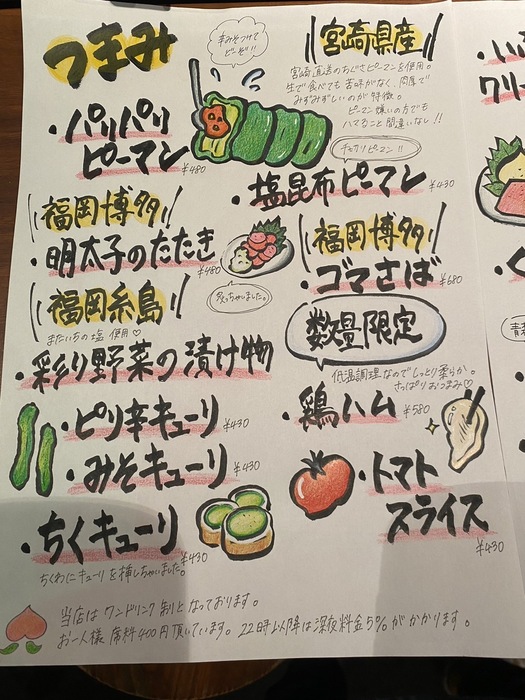 つまみ
辛みそつけて
どーぞ!!
・パリパリ
ピーマン ¥480
宮崎県産
宮崎直送のちぐさピーマンを使用。
生で食べても苦味がなく、肉厚で
みずみずしいのが特徴。
ピーマン嫌いの方でも
ハマること間違いなし!!
・塩昆布ピーマン ¥430
福岡博多
・明太子のたたき ¥480
炙っちゃいました。
福岡博多
・ゴマさば ¥680
福岡糸島
またいちの塩 使用♡
・彩り野菜の漬け物
数量限定
低温調理なのでしっとり柔らか。
さっぱりおつまみ♡
・鶏ハム ¥580
・ピリ辛キューリ ¥430
・みそキューリ ¥430
・ちくキューリ ¥430
ちくわにキューリを挿しちゃいました。
・トマト
スライス ¥430
当店はワンドリンク制となっております。
お一人様 席料400円頂いています。22時以降は深夜料金5%がかかります。